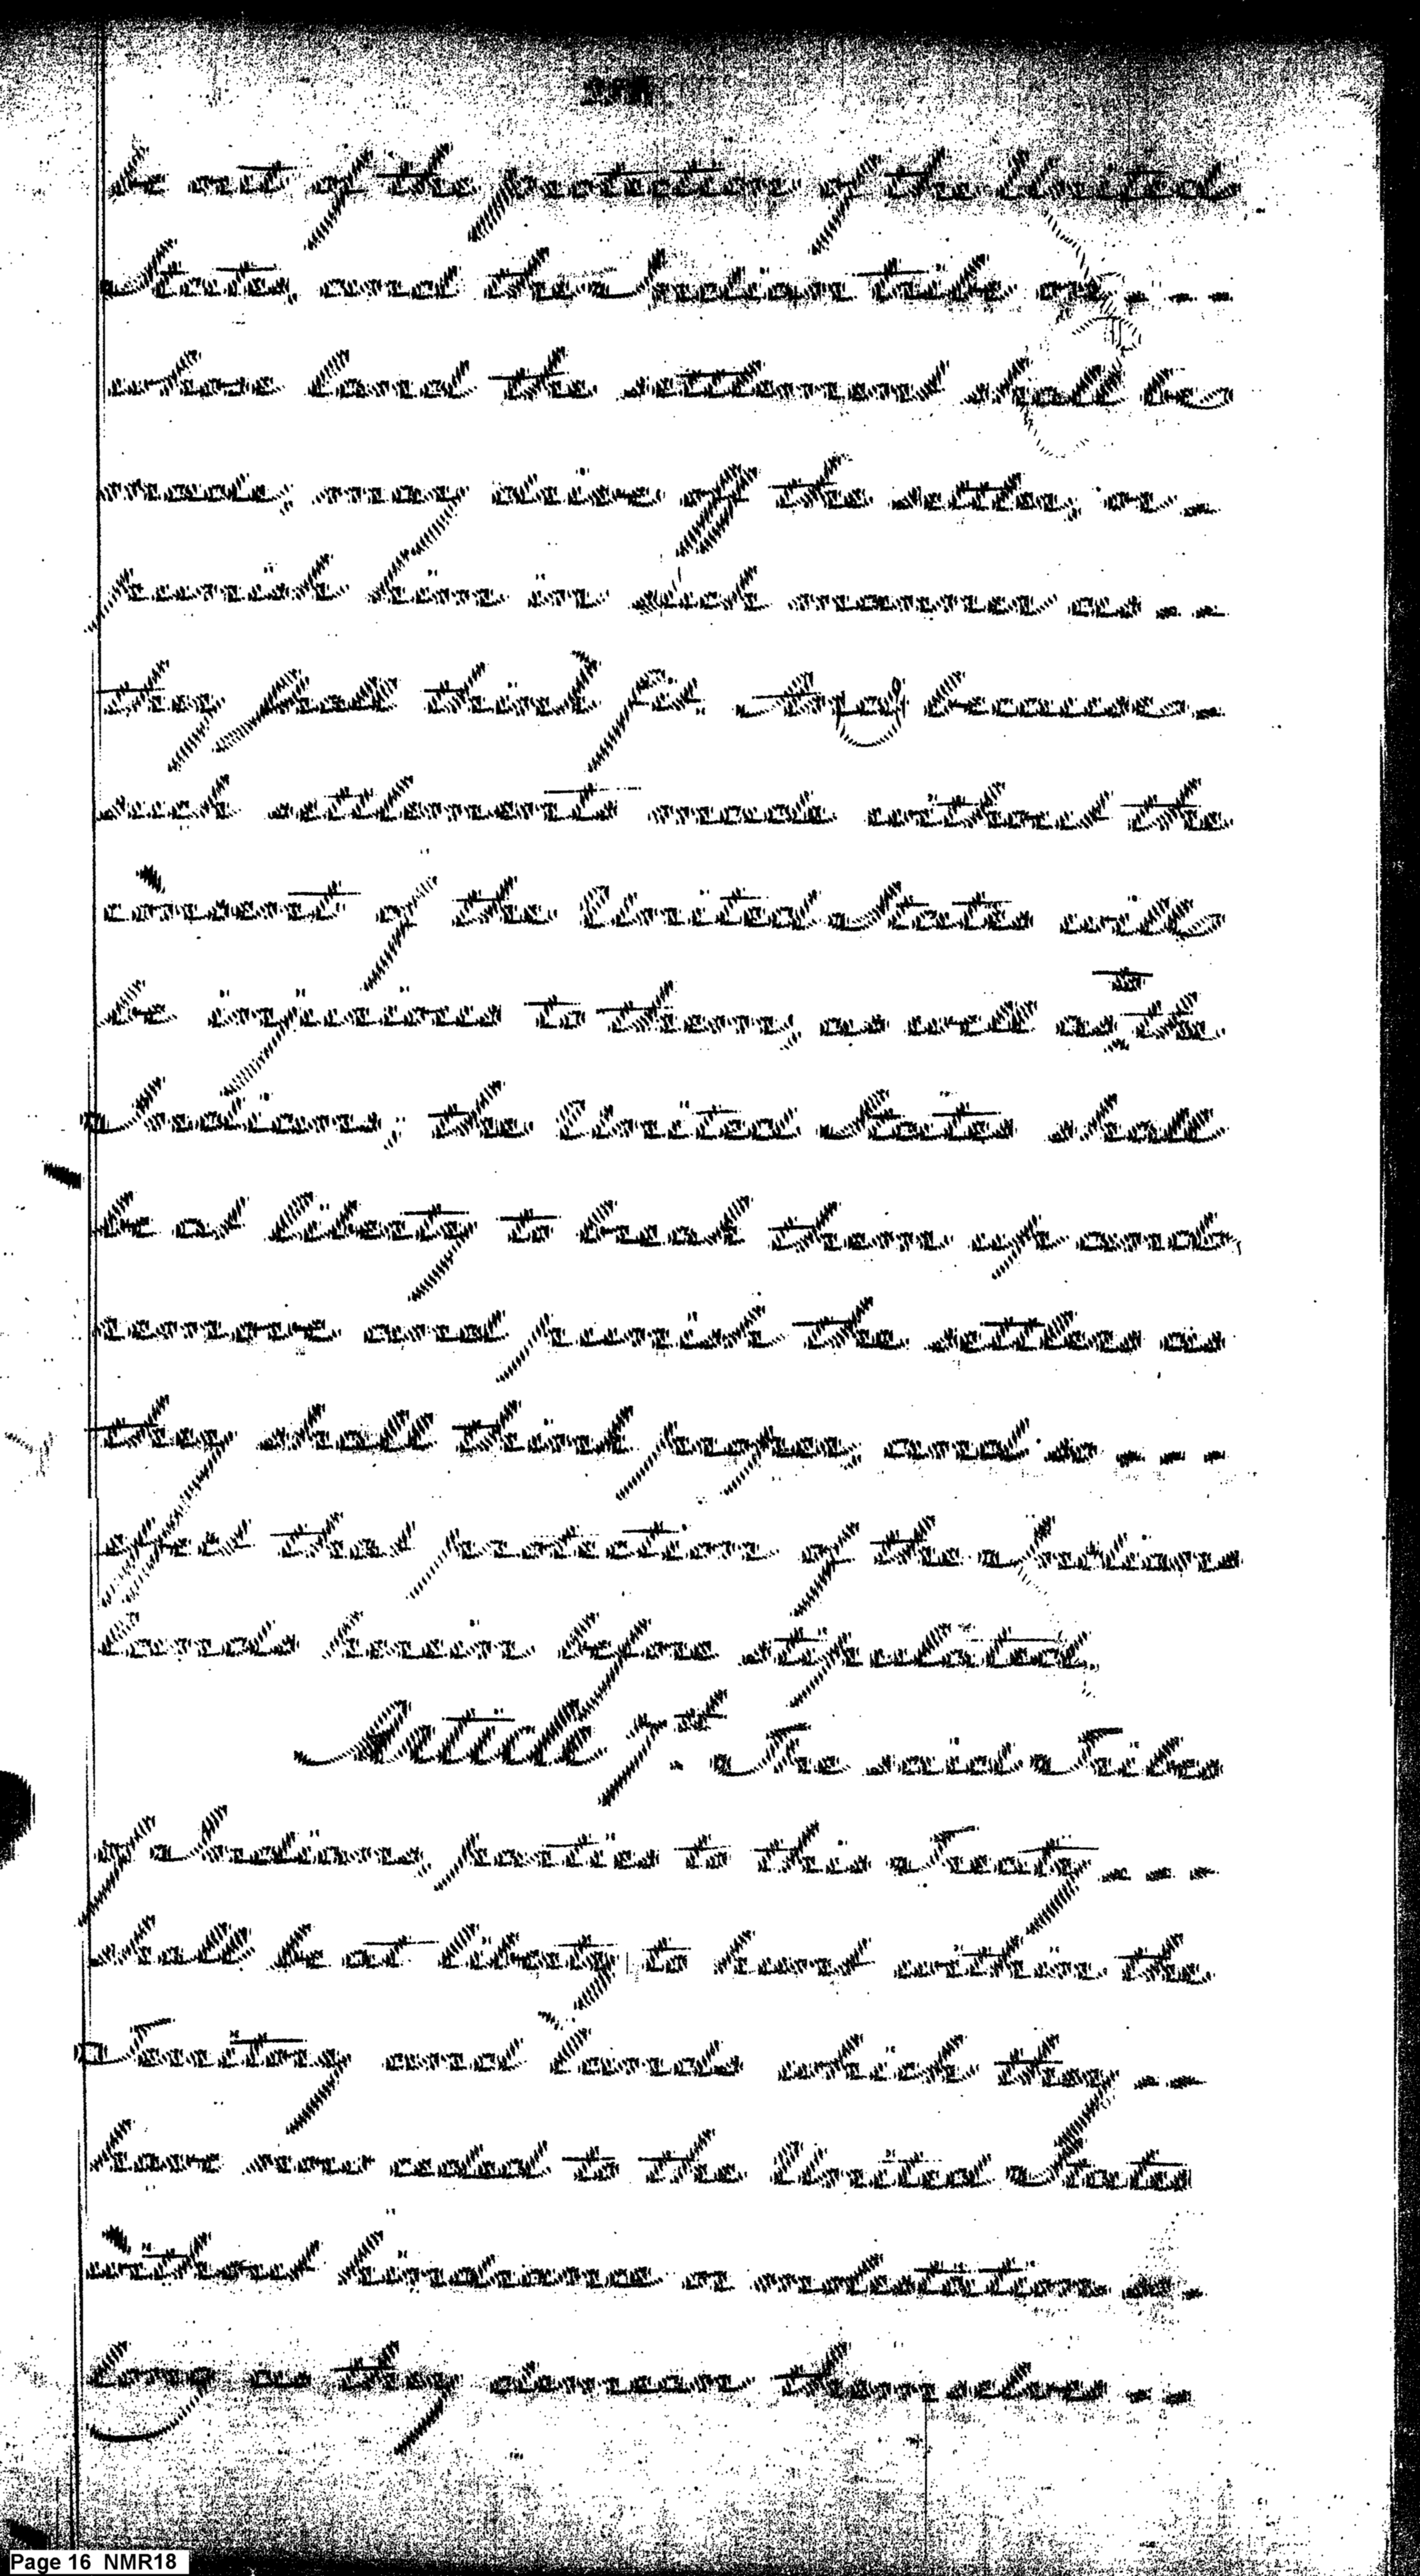 be out of the protection of the United
States, and the Indian tribe on - - -
whose land the settlement shall be
made, may drive off the settler, or -
punish him in such manner as - -
they shall think fit. And because -
such settlements made without the
consent of the United States will
be injurious to them, as well as to the
Indians; the United States shall
be at liberty to break them up and
remove and punish the settlers as
they shall think proper, and so - - -
effect that protection of the Indian
lands herein before stipulated.
Article 7th. The said Tribes
of Indians, parties to this Treaty - - -
shall be at liberty to hunt within the
Territory and lands which they - -
have now ceded to the United States
without hindrance or molestation so -
long as they demean themselves - -
Page 16 NMR18